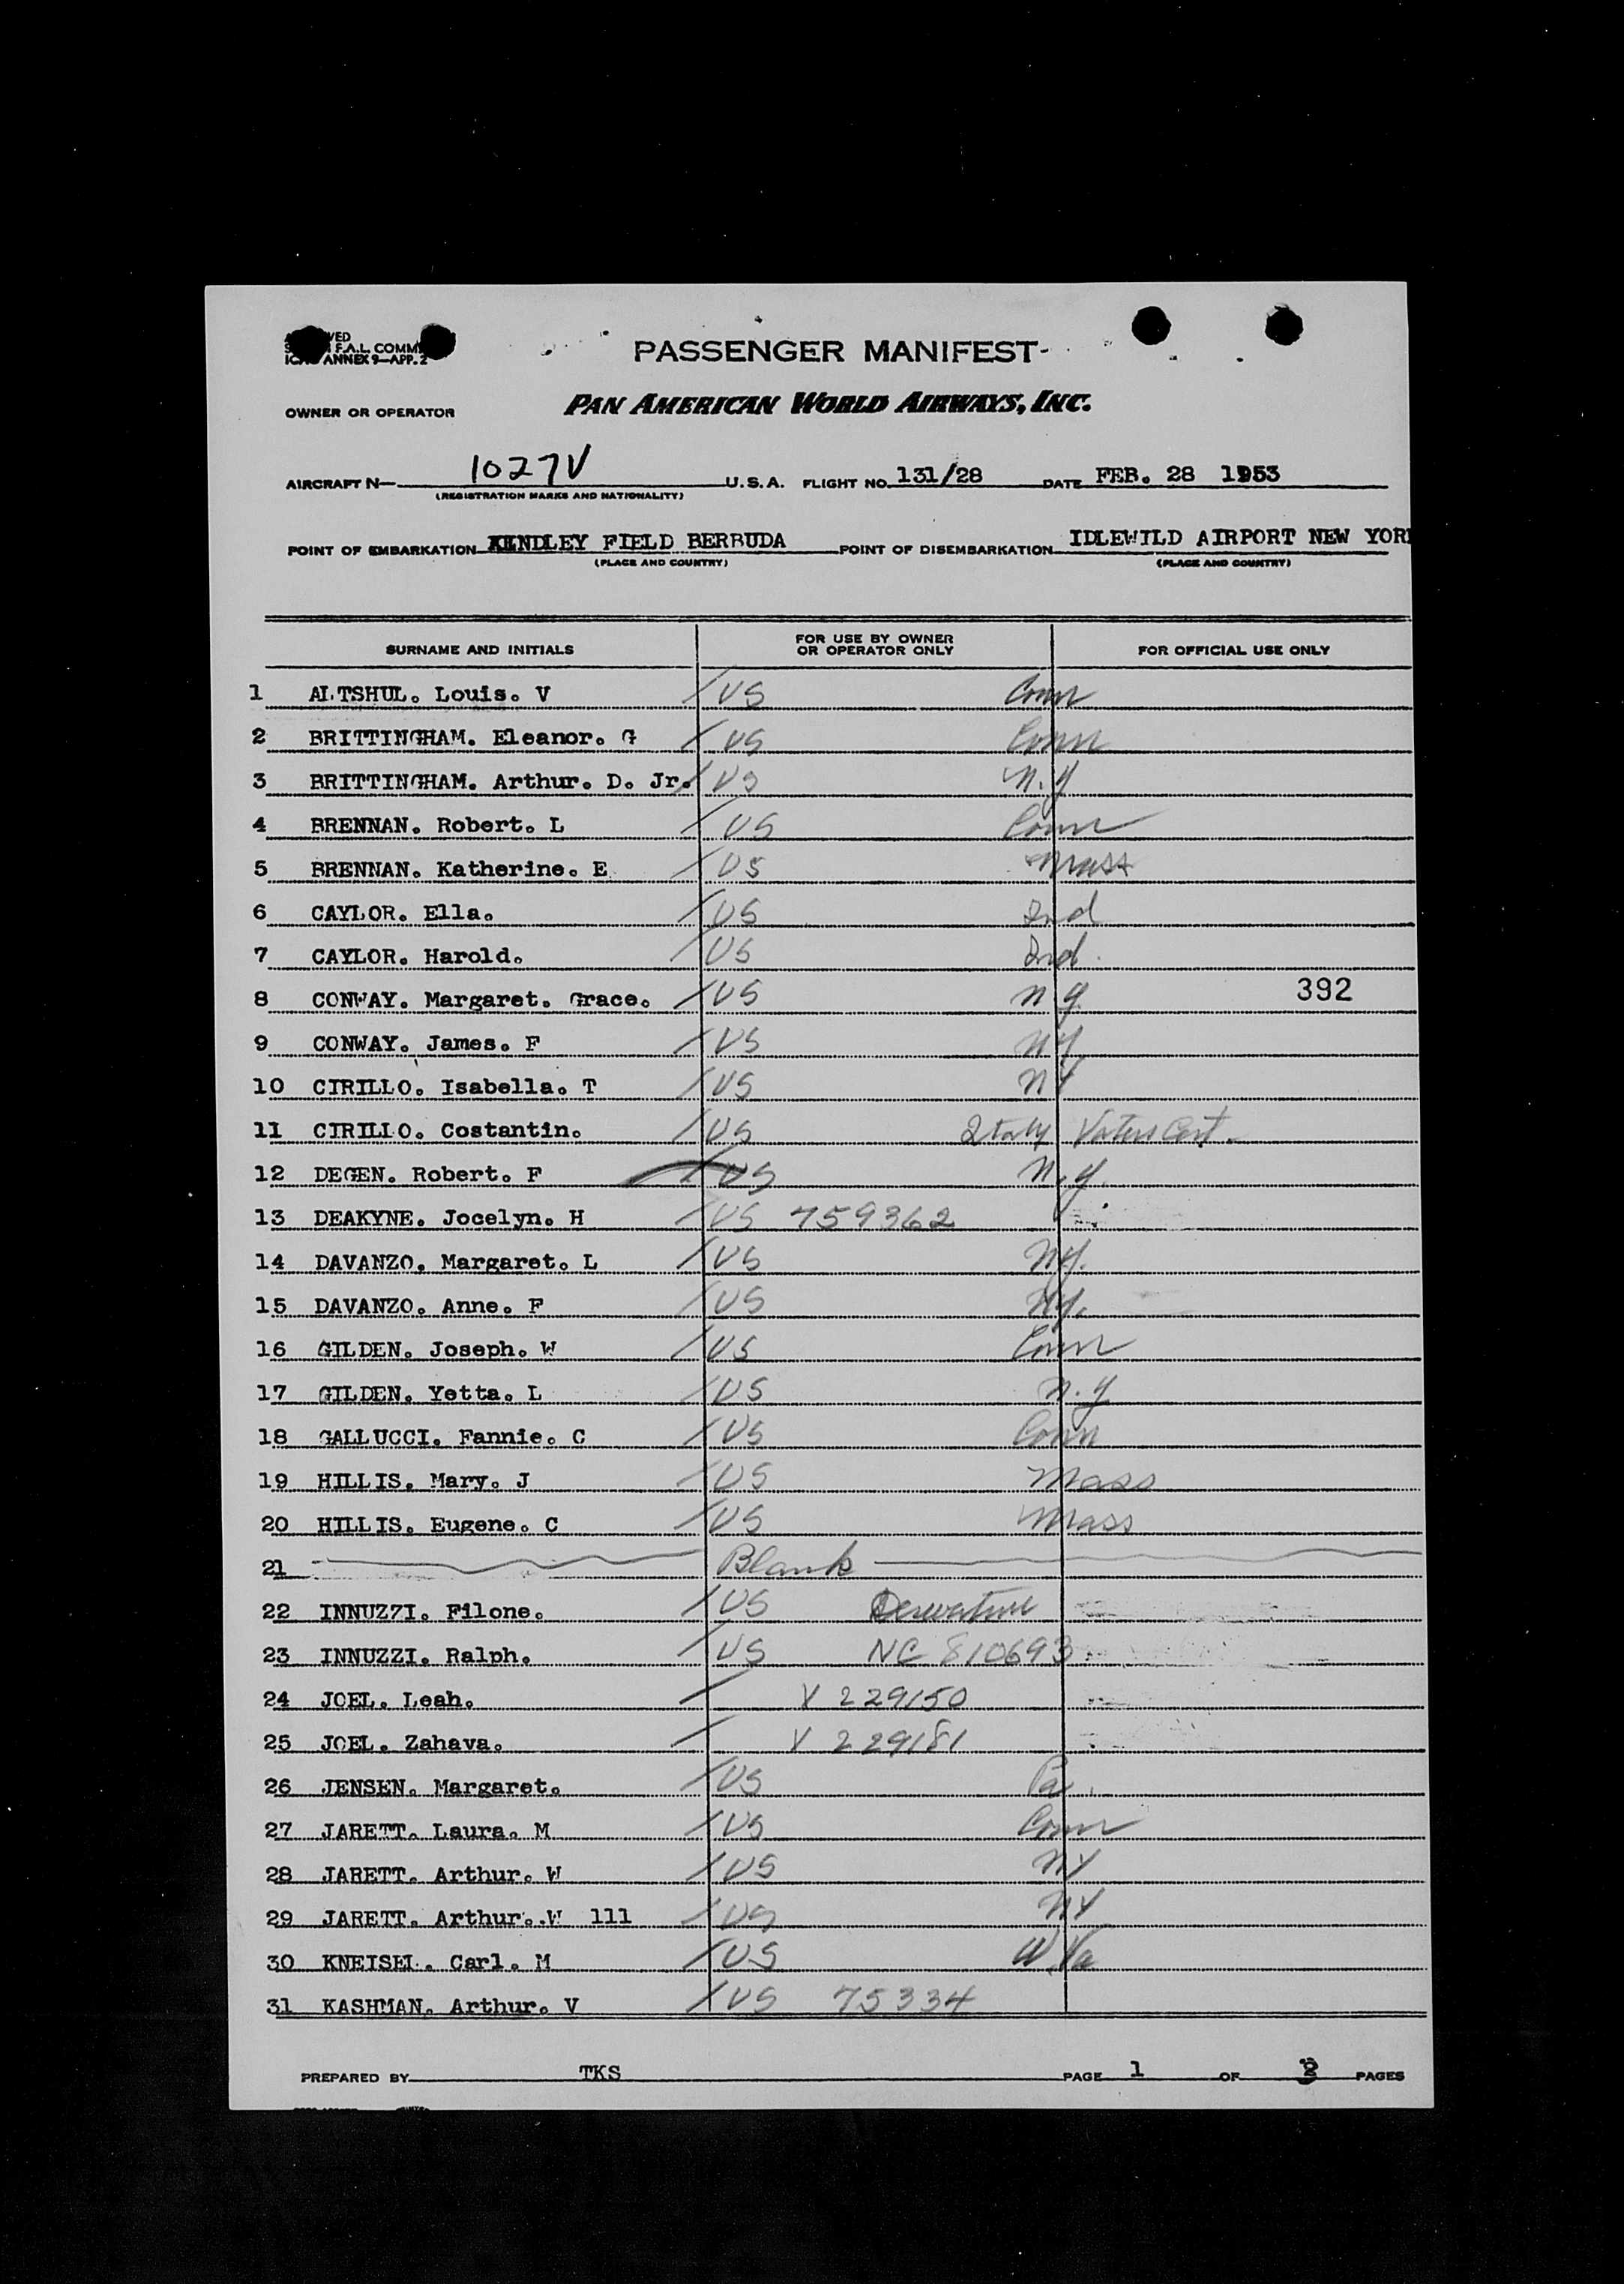 VED
F.A.L. COMM
ANNEX 9—APP. 2
PASSENGER MANIFEST
OWNER OR OPERATOR PAN AMERICAN WORLD AIRWAYS, INC.
AIRCRAFT N— 1027V U.S.A. FLIGHT NO. 131/28 DATE FEB. 28 1953
(REGISTRATION MARKS AND NATIONALITY)
POINT OF EMBARKATION KINDLEY FIELD BERBUDA POINT OF DISEMBARKATION IDLEWILD AIRPORT NEW YOR
(PLACE AND COUNTRY) (PLACE AND COUNTRY)
SURNAME AND INITIALS FOR USE BY OWNER OR OPERATOR ONLY FOR OFFICIAL USE ONLY
1 ALTSHUL. Louis. V / US Conn
2 BRITTINGHAM. Eleanor. G / US Conn
3 BRITTINGHAM. Arthur. D. Jr. / US N.Y
4 BRENNAN. Robert. L / US Conn
5 BRENNAN. Katherine. E / US Mass
6 CAYLOR. Ella. / US Ind
7 CAYLOR. Harold. / US Ind.
8 CONWAY. Margaret. Grace. / US N Y. 392
9 CONWAY. James. F / US NY
10 CIRILLO. Isabella. T / US NY
11 CIRILLO. Costantin. / US Italy Voters Cert.
12 DEGEN. Robert. F / US N.Y.
13 DEAKYNE. Jocelyn. H / US 759362
14 DAVANZO. Margaret. L / US NY.
15 DAVANZO. Anne. F / US NY.
16 GILDEN. Joseph. W / US Conn
17 GILDEN. Yetta. L / US N.Y.
18 GALLUCCI. Fannie. C / US Conn
19 HILLIS. Mary. J / US Mass
20 HILLIS. Eugene. C / US Mass
21 Blank
22 INNUZZI. Filone. / US Derivative
23 INNUZZI. Ralph. / US NC 810693
24 JOEL. Leah. / V 229150
25 JOEL. Zahava. / V 229181
26 JENSEN. Margaret. / US Pa.
27 JARETT. Laura. M / US Conn
28 JARETT. Arthur. W / US NY
29 JARETT. Arthur. W 111 / US NY
30 KNEISEL. Carl. M / US W.Va
31 KASHMAN. Arthur. V / US 75334
PREPARED BY TKS PAGE 1 OF PAGES